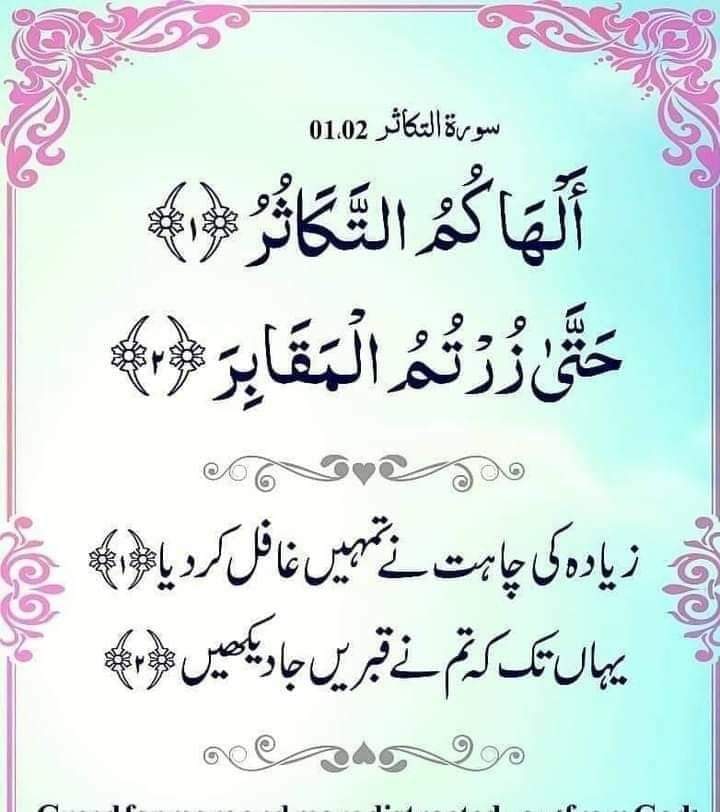 سورة التکاثر 01.02
أَلْهَاكُمُ التَّكَاثُرُ ﴿١﴾
حَتَّىٰ زُرْتُمُ الْمَقَابِرَ ﴿٢﴾
زیادہ کی چاہت نے تمہیں غافل کردیا ﴿۱﴾
یہاں تک کہ تم نے قبریں جا دیکھیں ﴿۲﴾